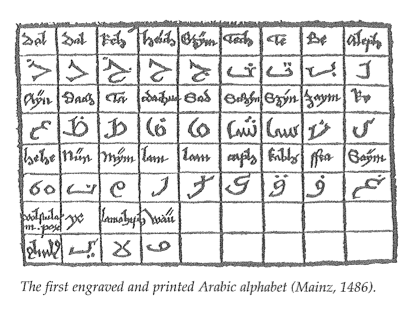 Dal Dal Kch heich Gzÿm Tech Te Be Aleph
ذ د خ ح ج ث ت ب ا
Aÿn Dach Ta Sad Schÿn Szÿn Zaym Re
ع ظ ط ض ص ش س ز ر
hehe Nün Mÿm lam lam caph ffea Gaÿm
ه ن م ل ل ك ق ف غ
ye wau
ي لا و
The first engraved and printed Arabic alphabet (Mainz, 1486).